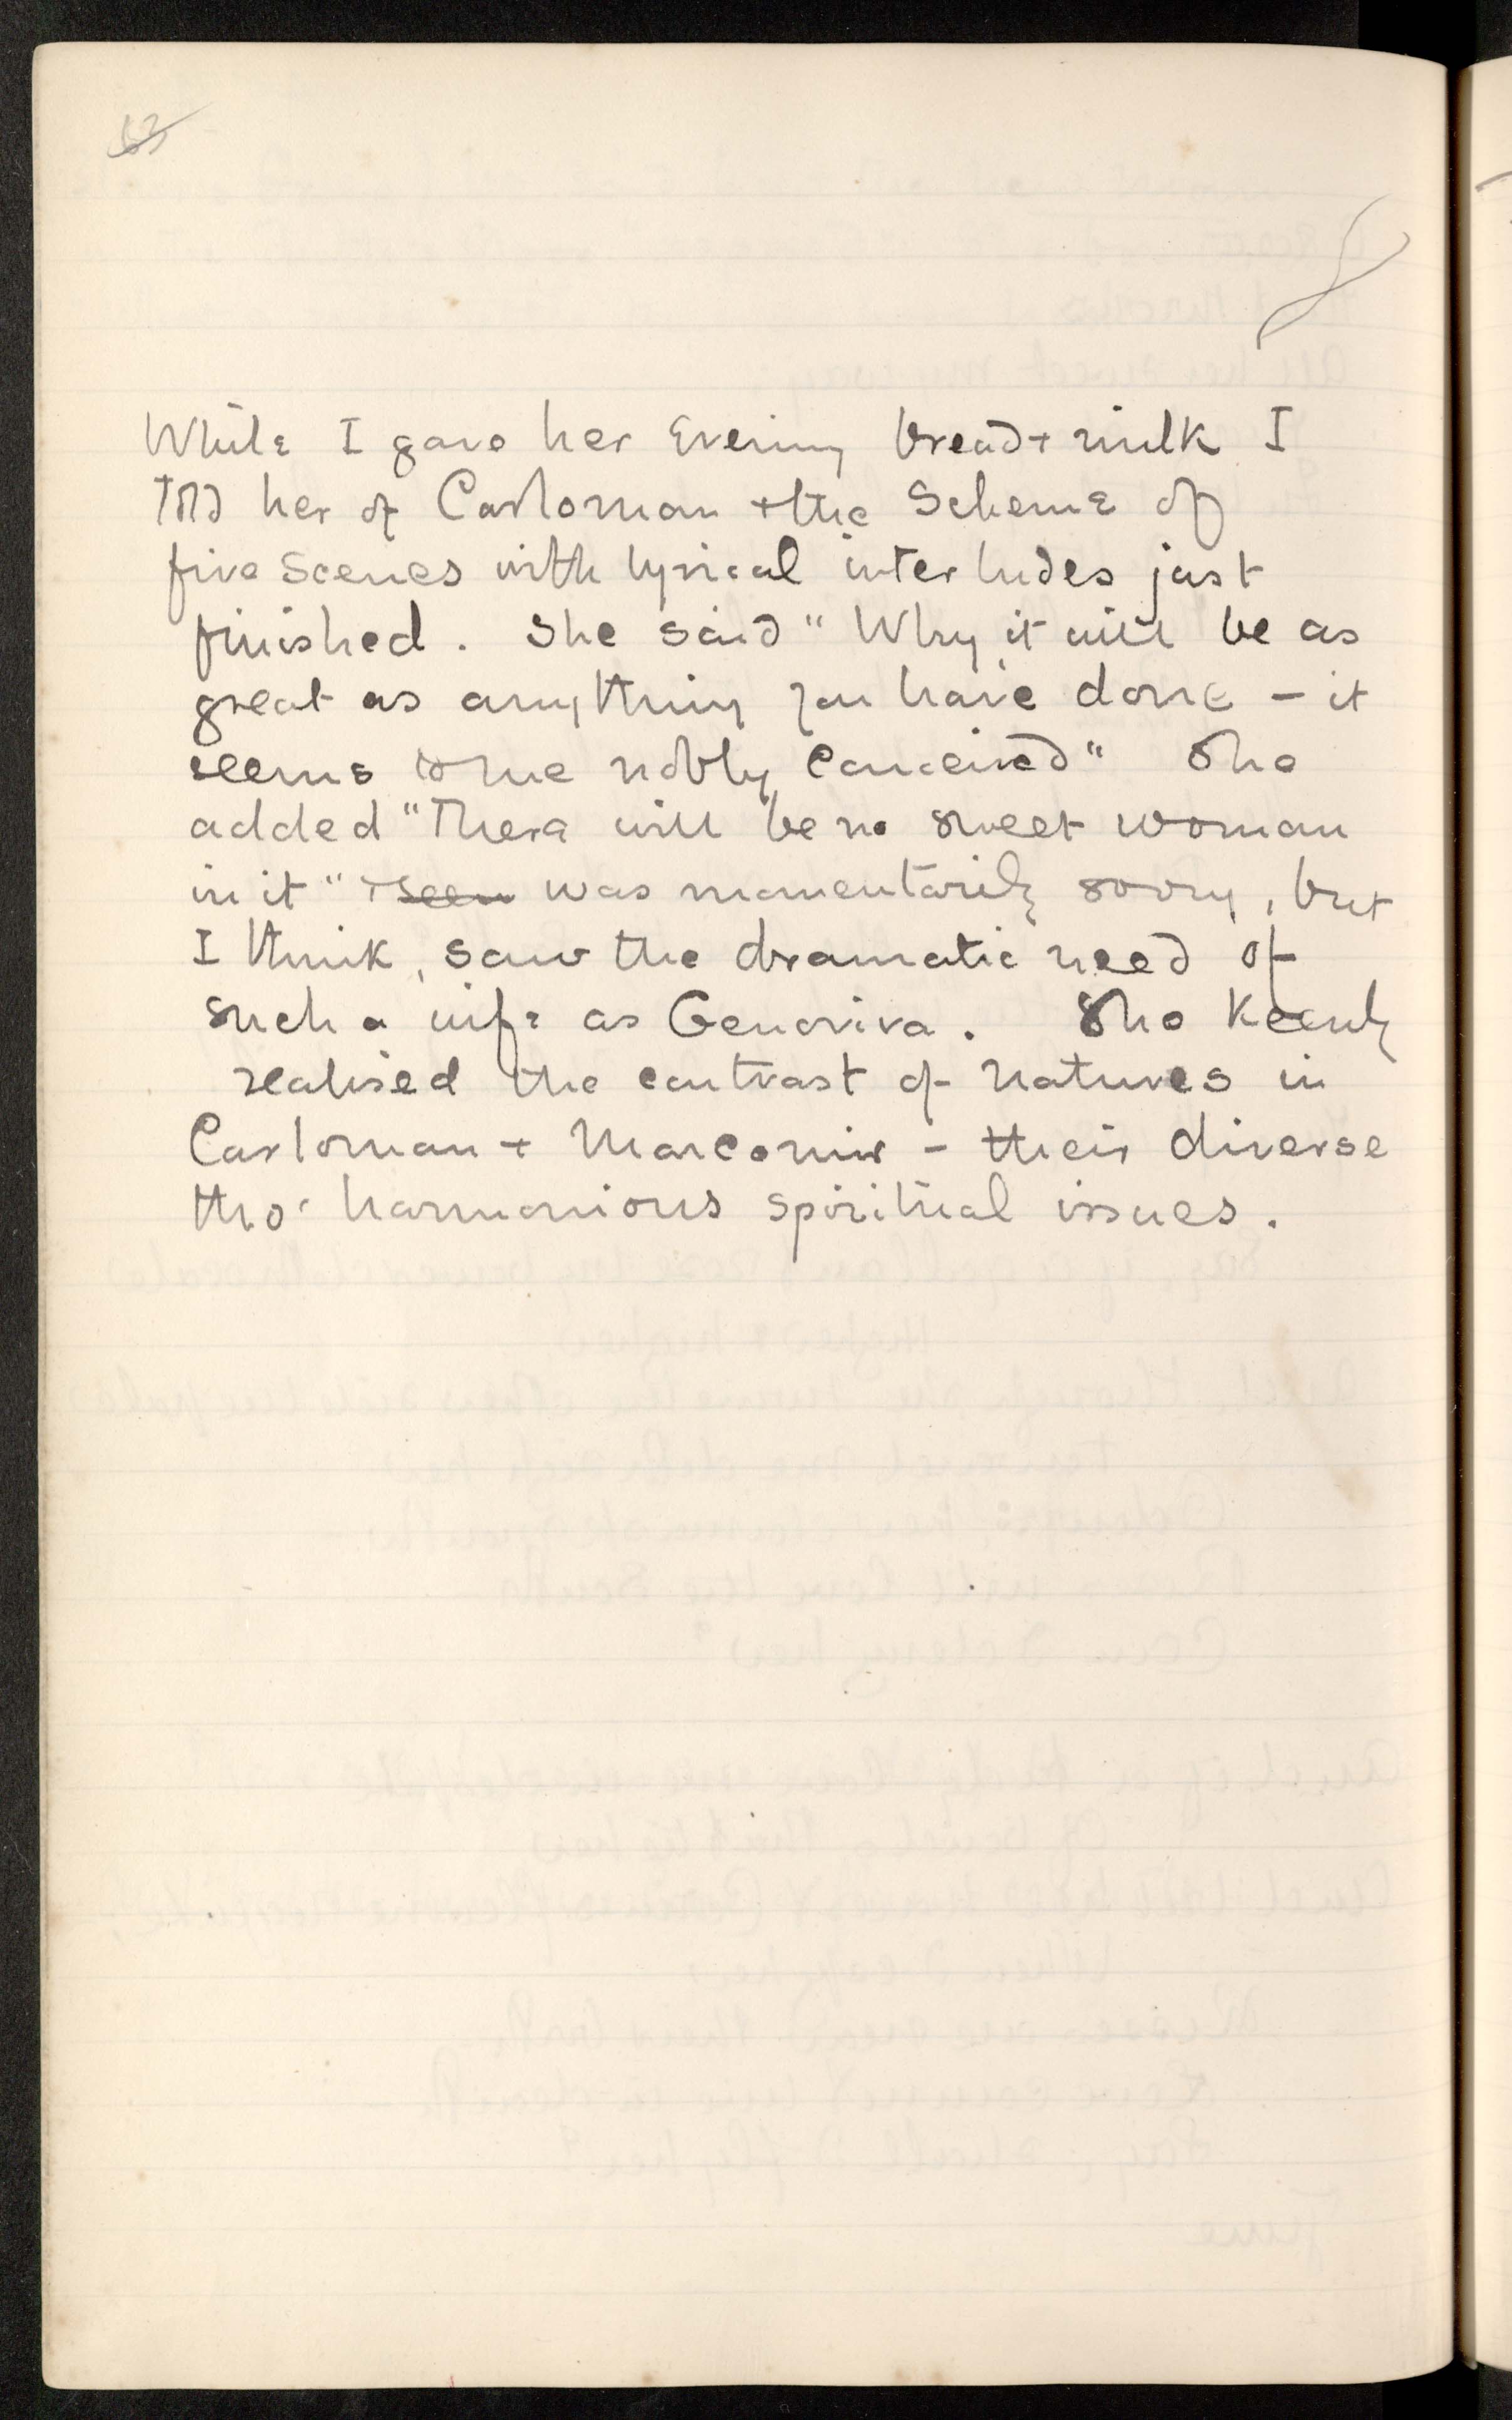 While I gave her Evening bread + milk I
told her of Carloman + the Scheme of
five Scenes with lyrical interludes just
finished. She said " Why it will be as
great as anything you have done – it
seems to me nobly conceived " She
added " There will be no sweet woman
in it " + seen was momentarily sorry, but
I think, saw the dramatic need of
such a wife as Genoviva. She keenly
realised the contrast of natures in
Carloman + Marcomir – their diverse
tho' harmonious spiritual issues.